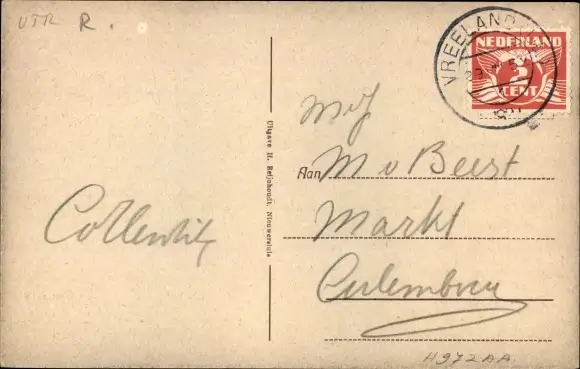 UTR R.
VREELAND
NEDERLAND
CENT
Mej
Aan M v Beest
Markt
Culemborg
Uitgave H. Reijnhoudt, Nieuwersluis
H972AA